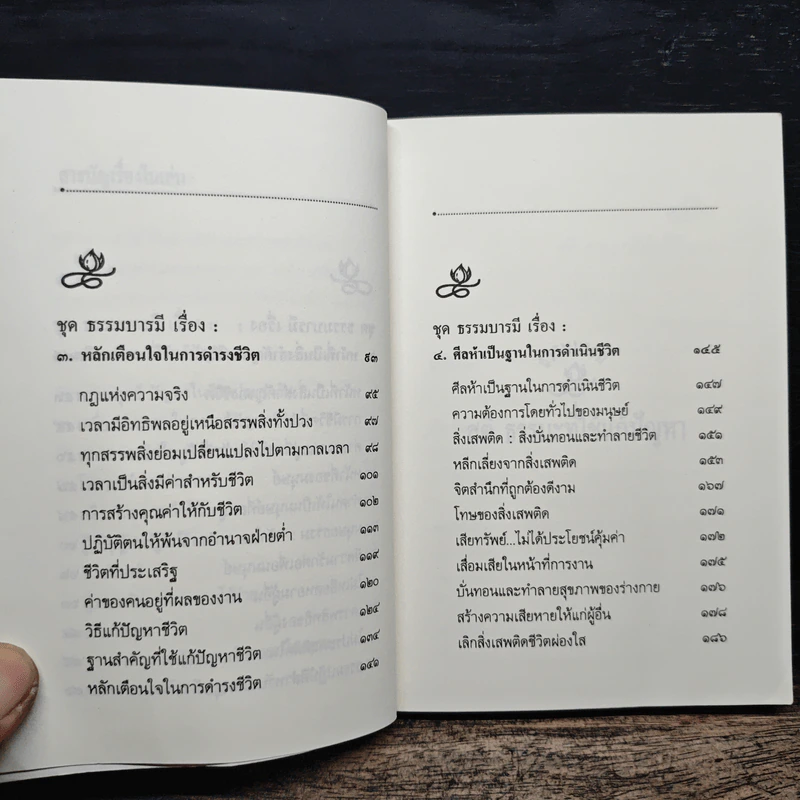 ชุด ธรรมบารมี เรื่อง :
๓. หลักเตือนใจในการดำรงชีวิต ๙๓
กฎแห่งความจริง ๙๕
เวลามีอิทธิพลอยู่เหนือสรรพสิ่งทั้งปวง ๙๗
ทุกสรรพสิ่งย่อมเปลี่ยนแปลงไปตามกาลเวลา ๙๘
เวลาเป็นสิ่งมีค่าสำหรับชีวิต ๑๐๑
การสร้างคุณค่าให้กับชีวิต ๑๐๒
ปฏิบัติตนให้พ้นจากอำนาจฝ่ายต่ำ ๑๑๓
ชีวิตที่ประเสริฐ ๑๑๙
ค่าของคนอยู่ที่ผลของงาน ๑๒๐
วิธีแก้ปัญหาชีวิต ๑๒๔
ฐานสำคัญที่ใช้แก้ปัญหาชีวิต ๑๓๔
หลักเตือนใจในการดำรงชีวิต ๑๔๑
ชุด ธรรมบารมี เรื่อง :
๔. ศีลห้าเป็นฐานในการดำเนินชีวิต ๑๔๕
ศีลห้าเป็นฐานในการดำเนินชีวิต ๑๔๗
ความต้องการโดยทั่วไปของมนุษย์ ๑๔๙
สิ่งเสพติด : สิ่งบั่นทอนและทำลายชีวิต ๑๕๑
หลีกเลี่ยงจากสิ่งเสพติด ๑๕๓
จิตสำนึกที่ถูกต้องดีงาม ๑๖๗
โทษของสิ่งเสพติด ๑๗๑
เสียทรัพย์...ไม่ได้ประโยชน์คุ้มค่า ๑๗๒
เสื่อมเสียในหน้าที่การงาน ๑๗๕
บั่นทอนและทำลายสุขภาพของร่างกาย ๑๗๖
สร้างความเสียหายให้แก่ผู้อื่น ๑๗๘
เลิกสิ่งเสพติดชีวิตผ่องใส ๑๘๖